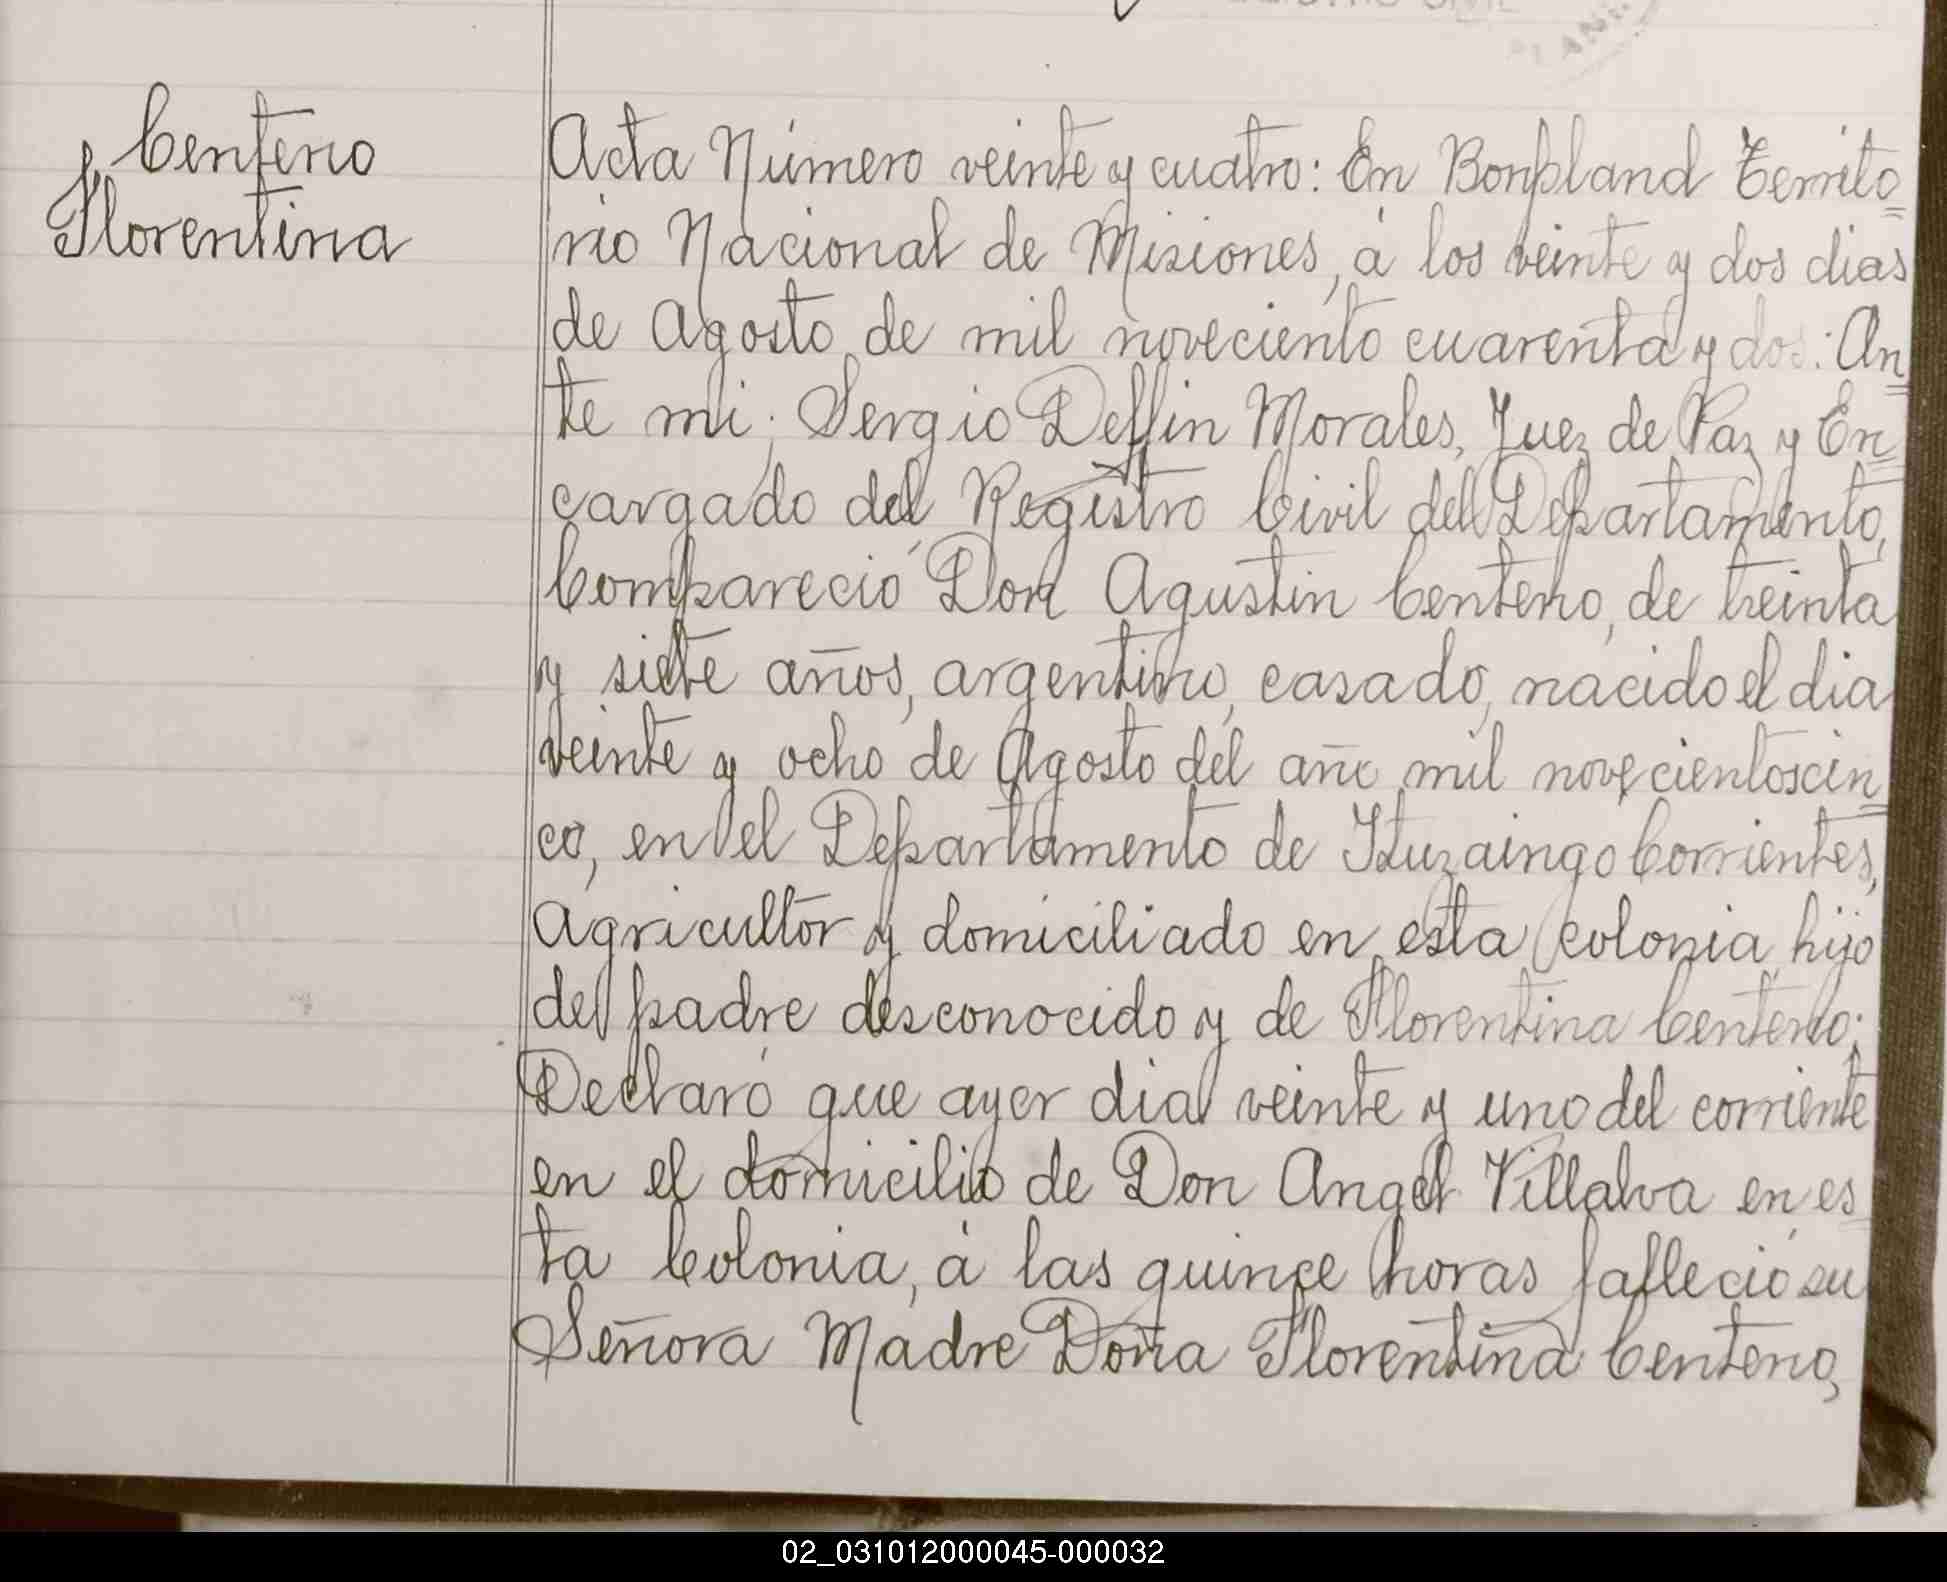 Centeno
Florentina
Acta Número veinte y cuatro: En Bonpland Territo=
rio Nacional de Misiones, á los veinte y dos dias
de Agosto de mil noveciento cuarenta y dos: An=
te mi; Sergio Delfin Morales, Juez de Paz y En=
cargado del Registro Civil del Departamento,
Compareció Don Agustin Centeno, de treinta
y siete años, argentino, casado, nacido el dia
veinte y ocho de Agosto del año mil novecientoscin=
co, en el Departamento de Ituzaingo Corrientes,
Agricultor y domiciliado en esta colonia, hijo
del padre desconocido y de Florentina Centeno;
Declaró que ayer dia veinte y uno del corriente
en el domicilio de Don Angel Villalva en es
ta Colonia, á las quince horas falleció su
Señora Madre Doña Florentina Centeno,
02_031012000045-000032